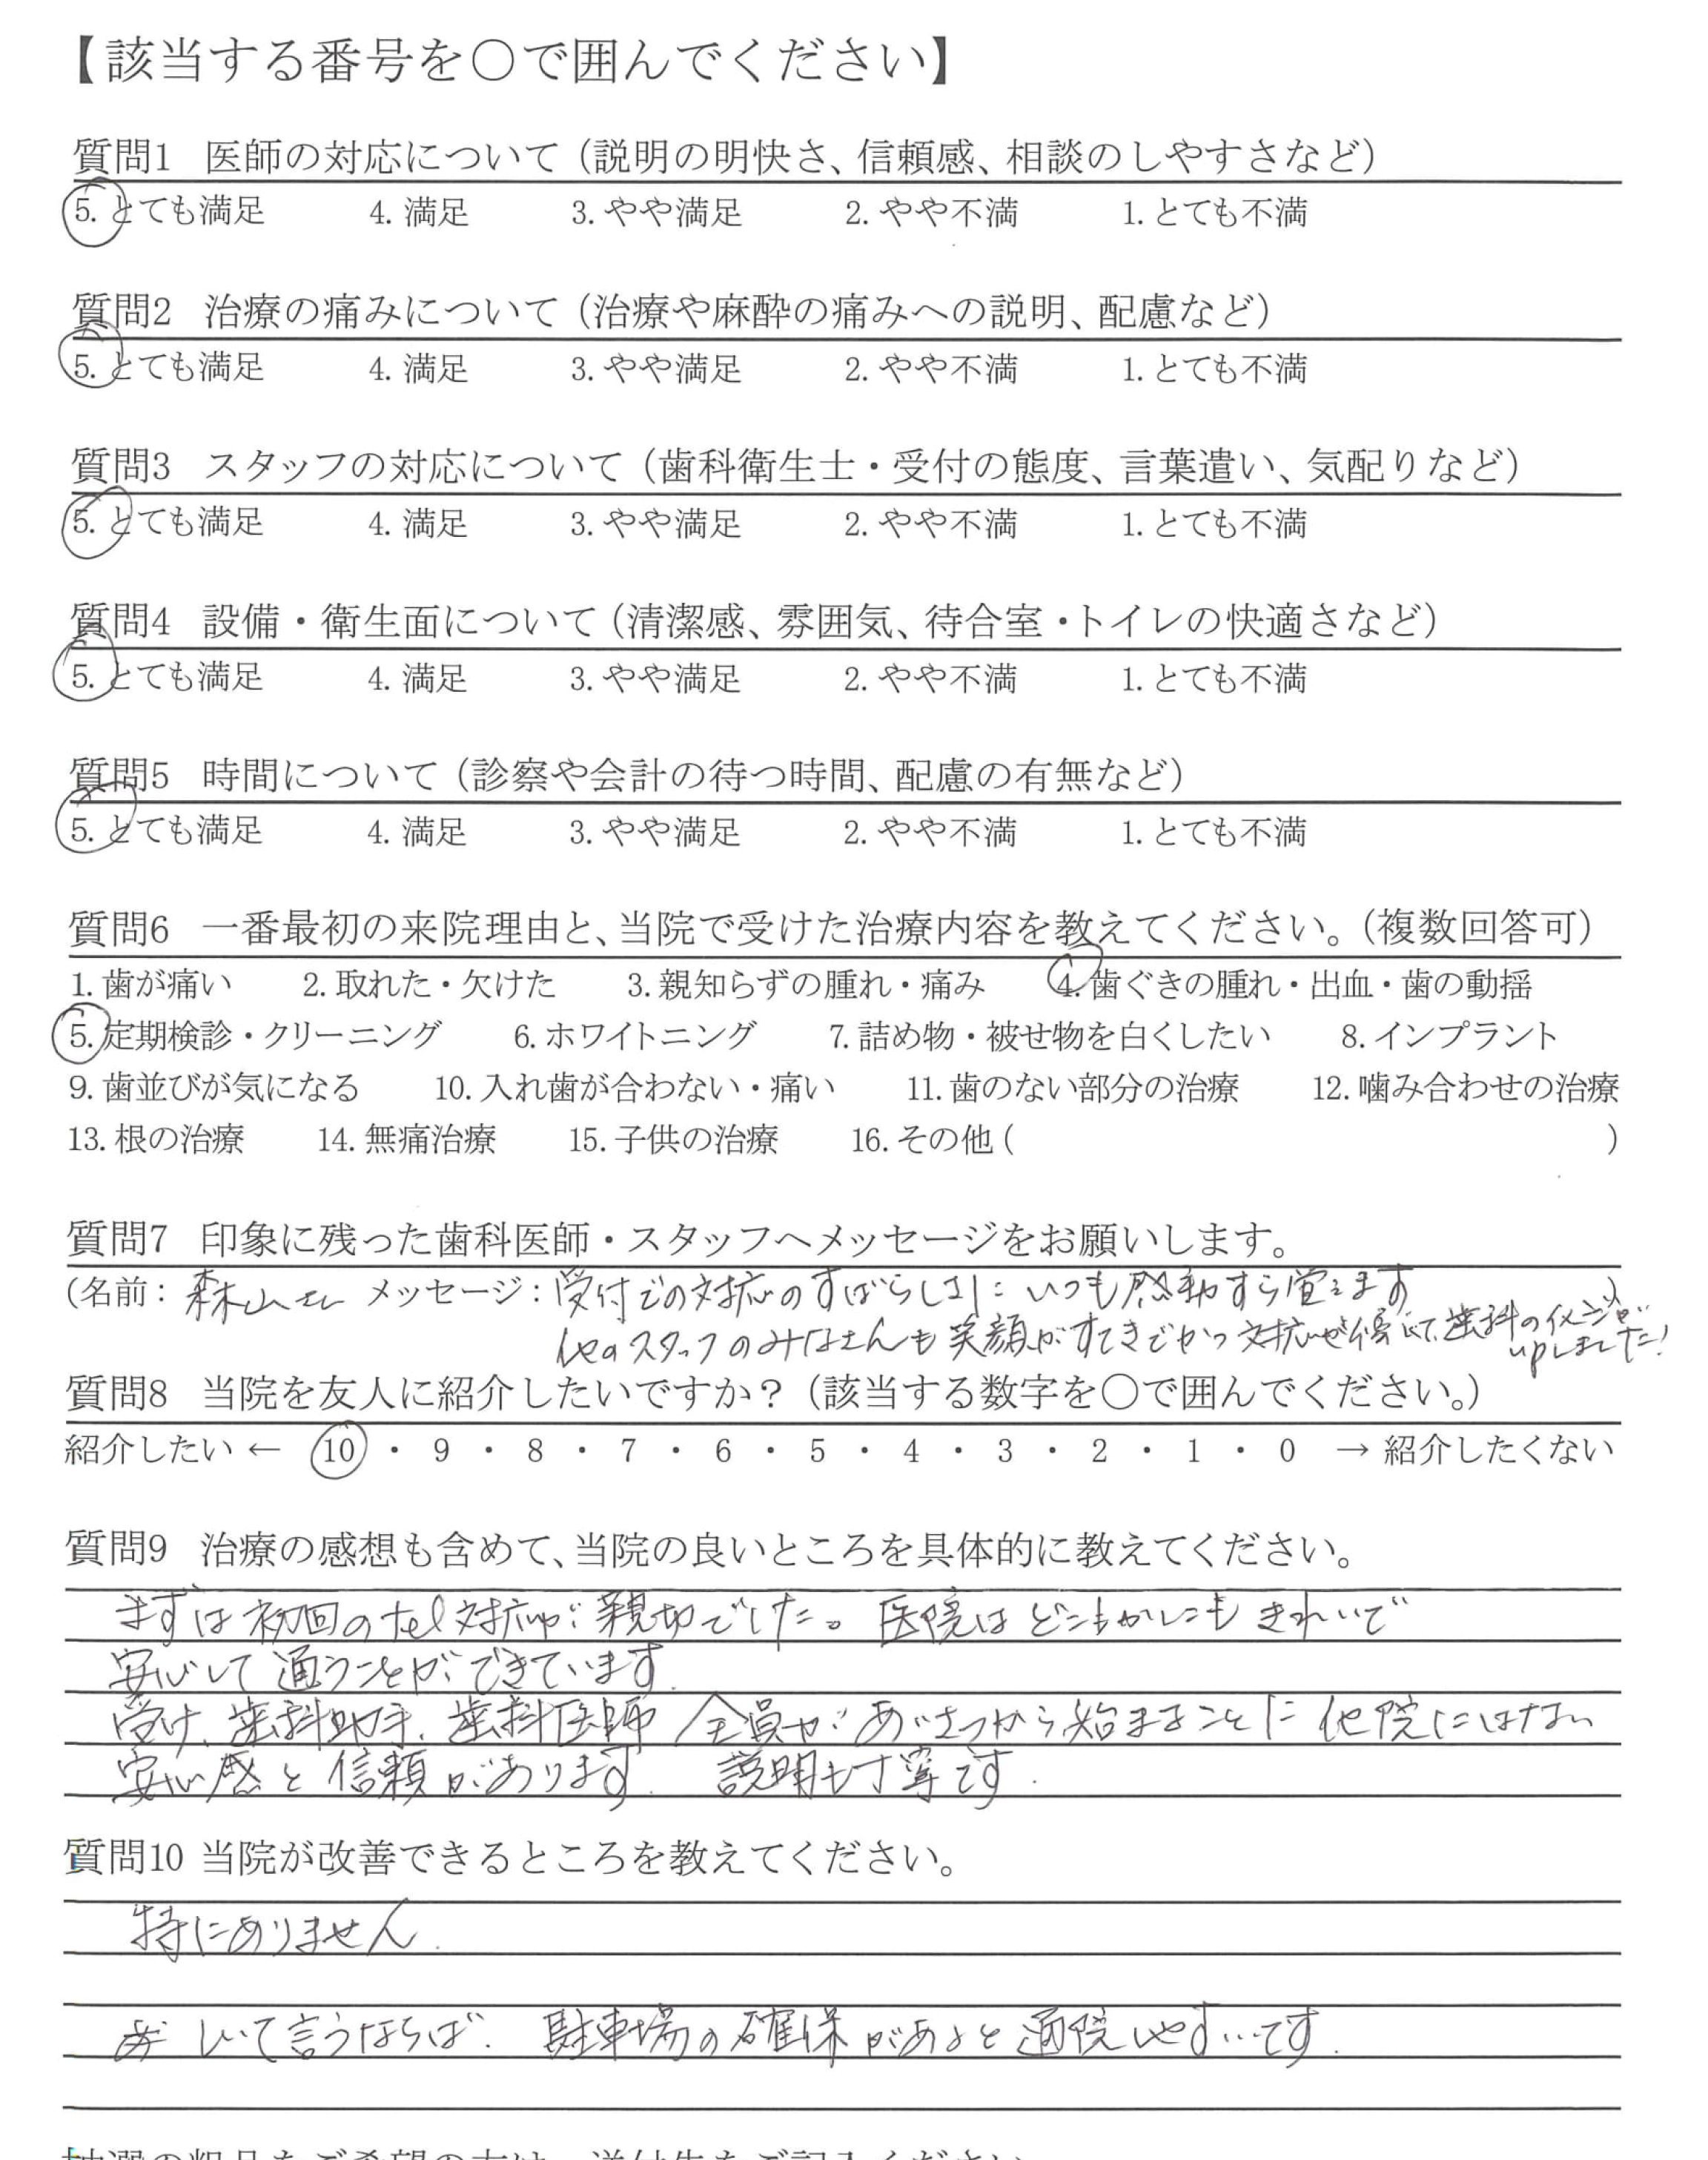 【該当する番号を○で囲んでください】
質問1 医師の対応について（説明の明快さ、信頼感、相談のしやすさなど）
5. とても満足 4. 満足 3. やや満足 2. やや不満 1. とても不満
質問2 治療の痛みについて（治療や麻酔の痛みへの説明、配慮など）
5. とても満足 4. 満足 3. やや満足 2. やや不満 1. とても不満
質問3 スタッフの対応について（歯科衛生士・受付の態度、言葉遣い、気配りなど）
5. とても満足 4. 満足 3. やや満足 2. やや不満 1. とても不満
質問4 設備・衛生面について（清潔感、雰囲気、待合室・トイレの快適さなど）
5. とても満足 4. 満足 3. やや満足 2. やや不満 1. とても不満
質問5 時間について（診察や会計の待つ時間、配慮の有無など）
5. とても満足 4. 満足 3. やや満足 2. やや不満 1. とても不満
質問6 一番最初の来院理由と、当院で受けた治療内容を教えてください。（複数回答可）
1. 歯が痛い 2. 取れた・欠けた 3. 親知らずの腫れ・痛み 4. 歯ぐきの腫れ・出血・歯の動揺
5. 定期検診・クリーニング 6. ホワイトニング 7. 詰め物・被せ物を白くしたい 8. インプラント
9. 歯並びが気になる 10. 入れ歯が合わない・痛い 11. 歯のない部分の治療 12. 噛み合わせの治療
13. 根の治療 14. 無痛治療 15. 子供の治療 16. その他（ ）
質問7 印象に残った歯科医師・スタッフへメッセージをお願いします。
（名前： 森山さん メッセージ：受付での対応のすばらしさに いつも感動すら覚えます ）
他のスタッフのみなさんも笑顔がすてきでかつ対応が 歯科のイメージが
upしました！
質問8 当院を友人に紹介したいですか？（該当する数字を○で囲んでください。）
紹介したい ← 10 ・ 9 ・ 8 ・ 7 ・ 6 ・ 5 ・ 4 ・ 3 ・ 2 ・ 1 ・ 0 → 紹介したくない
質問9 治療の感想も含めて、当院の良いところを具体的に教えてください。
まずは初回のtel対応が親切でした。医院はどこもかしこもきれいで
安心して通うことができています.
受付、歯科助手、歯科医師 全員があいさつから始まることに他院にはない
安心感と信頼があります. 説明も丁寧です.
質問10 当院が改善できるところを教えてください。
特にありません.
しいて言うならば. 駐車場の確保があると通院しやすいです.
抽選の粗品をご希望の方は、送付先をご記入ください